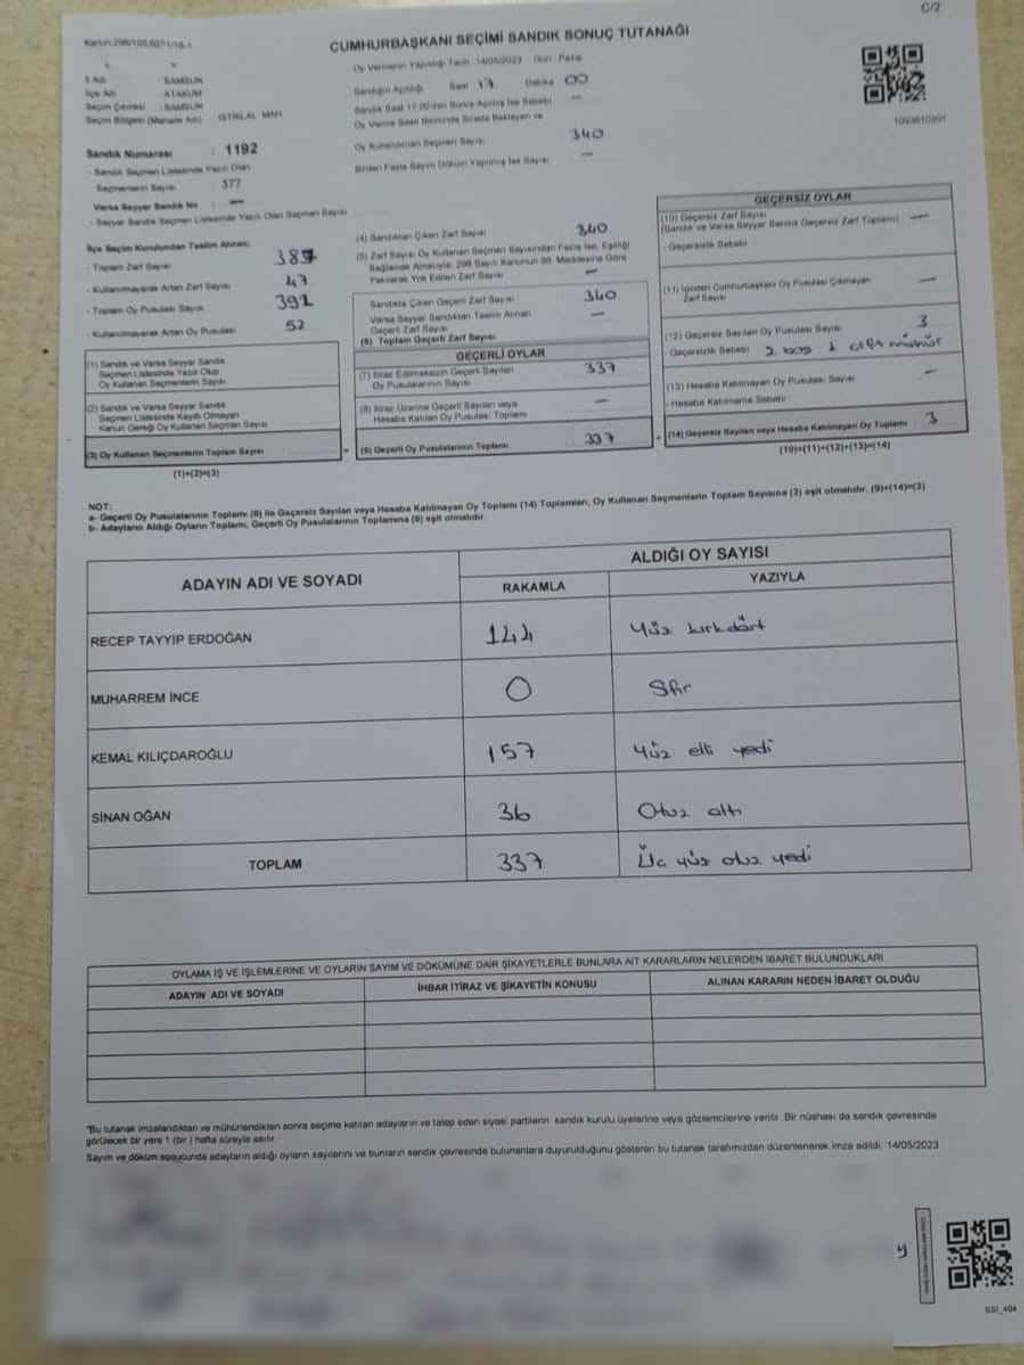 C/2
CUMHURBAŞKANI SEÇİMİ SANDIK SONUÇ TUTANAĞI
Oy Vermenin Yapıldığı Tarih : 14/05/2023 Gün : Pazar
İl Adı : SAMSUN
İlçe Adı : ATAKUM
Seçim Çevresi : SAMSUN
Seçim Bölgesi (Muhtarlık Adı) : İSTİKLAL MAH.
Sandığın Açıldığı Saat 17 Dakika 00
Sandık Saat 17.00'den Sonra Açılmış İse Sebebi —
Oy Kullandırılan Seçmen Sayısı 340
Birden Fazla Sayım Döküm Yapılmış İse Sayısı —
1093610991
Sandık Numarası : 1192
- Sandık Seçmen Listesinde Yazılı Olan
Seçmenlerin Sayısı : 377
Varsa Seyyar Sandık No : —
- Seyyar Sandık Seçmen Listesinde Yazılı Olan Seçmen Sayısı
İlçe Seçim Kurulundan Teslim Alınan;
- Toplam Zarf Sayısı 387
- Kullanılmayarak Artan Zarf Sayısı 47
- Toplam Oy Pusulası Sayısı 392
- Kullanılmayarak Artan Oy Pusulası 52
(1) Sandık ve Varsa Seyyar Sandık
Seçmen Listesinde Yazılı Olup
Oy Kullanan Seçmenlerin Sayısı
(2) Sandık ve Varsa Seyyar Sandık
Seçmen Listesinde Kayıtlı Olmayan
Kanun Gereği Oy Kullanan Seçmen Sayısı
(3) Oy Kullanan Seçmenlerin Toplam Sayısı
(1)+(2)=(3)
(4) Sandıktan Çıkan Zarf Sayısı 340
(5) Zarf Sayısı Oy Kullanan Seçmen Sayısından Fazla İse, Eşitliği
Sağlamak Amacıyla; 298 Sayılı Kanunun 98. Maddesine Göre
Yakılarak Yok Edilen Zarf Sayısı —
Sandıkta Çıkan Geçerli Zarf Sayısı 340
Varsa Seyyar Sandıktan Teslim Alınan
Geçerli Zarf Sayısı —
(6) Toplam Geçerli Zarf Sayısı
GEÇERLİ OYLAR
(7) İtiraz Edilmeksizin Geçerli Sayılan
Oy Pusulalarının Sayısı 337
(8) İtiraz Üzerine Geçerli Sayılan veya
Hesaba Katılan Oy Pusulası Toplamı —
(9) Geçerli Oy Pusulalarının Toplamı 337
GEÇERSİZ OYLAR
(10) Geçersiz Zarf Sayısı
(Sandık ve Varsa Seyyar Sandık Geçersiz Zarf Toplamı) —
- Geçersizlik Sebebi
(11) İçinden Cumhurbaşkanı Oy Pusulası Çıkmayan
Zarf Sayısı —
(12) Geçersiz Sayılan Oy Pusulası Sayısı 3
- Geçersizlik Sebebi 2 boş 1 çift mühür
(13) Hesaba Katılmayan Oy Pusulası Sayısı —
- Hesaba Katılmama Sebebi
(14) Geçersiz Sayılan veya Hesaba Katılmayan Oy Toplamı 3
(10)+(11)+(12)+(13)=(14)
NOT:
a- Geçerli Oy Pusulalarının Toplamı (9) ile Geçersiz Sayılan veya Hesaba Katılmayan Oy Toplamı (14) Toplamları, Oy Kullanan Seçmenlerin Toplam Sayısına (3) eşit olmalıdır. (9)+(14)=(3)
b- Adayların Aldığı Oyların Toplamı, Geçerli Oy Pusulalarının Toplamına (9) eşit olmalıdır.
ADAYIN ADI VE SOYADI
ALDIĞI OY SAYISI
RAKAMLA YAZIYLA
RECEP TAYYİP ERDOĞAN 144 Yüz kırkdört
MUHARREM İNCE 0 Sıfır
KEMAL KILIÇDAROĞLU 157 Yüz elli yedi
SİNAN OĞAN 36 Otuz altı
TOPLAM 337 Üç yüz otuz yedi
OYLAMA İŞ VE İŞLEMLERİNE VE OYLARIN SAYIM VE DÖKÜMÜNE DAİR ŞİKAYETLERLE BUNLARA AİT KARARLARIN NELERDEN İBARET BULUNDUKLARI
ADAYIN ADI VE SOYADI İHBAR İTİRAZ VE ŞİKAYETİN KONUSU ALINAN KARARIN NEDEN İBARET OLDUĞU
*Bu tutanak imzalandıktan ve mühürlendikten sonra seçime katılan adayların ve talep eden siyasi partilerin sandık kurulu üyelerine veya gözlemcilerine verilir. Bir nüshası da sandık çevresinde
görülecek bir yere 1 (bir) hafta süreyle asılır.
Sayım ve döküm sonucunda adayların aldığı oyların sayılarını ve bunların sandık çevresinde bulunanlara duyurulduğunu gösteren bu tutanak tarafımızdan düzenlenerek imza edildi. 14/05/2023